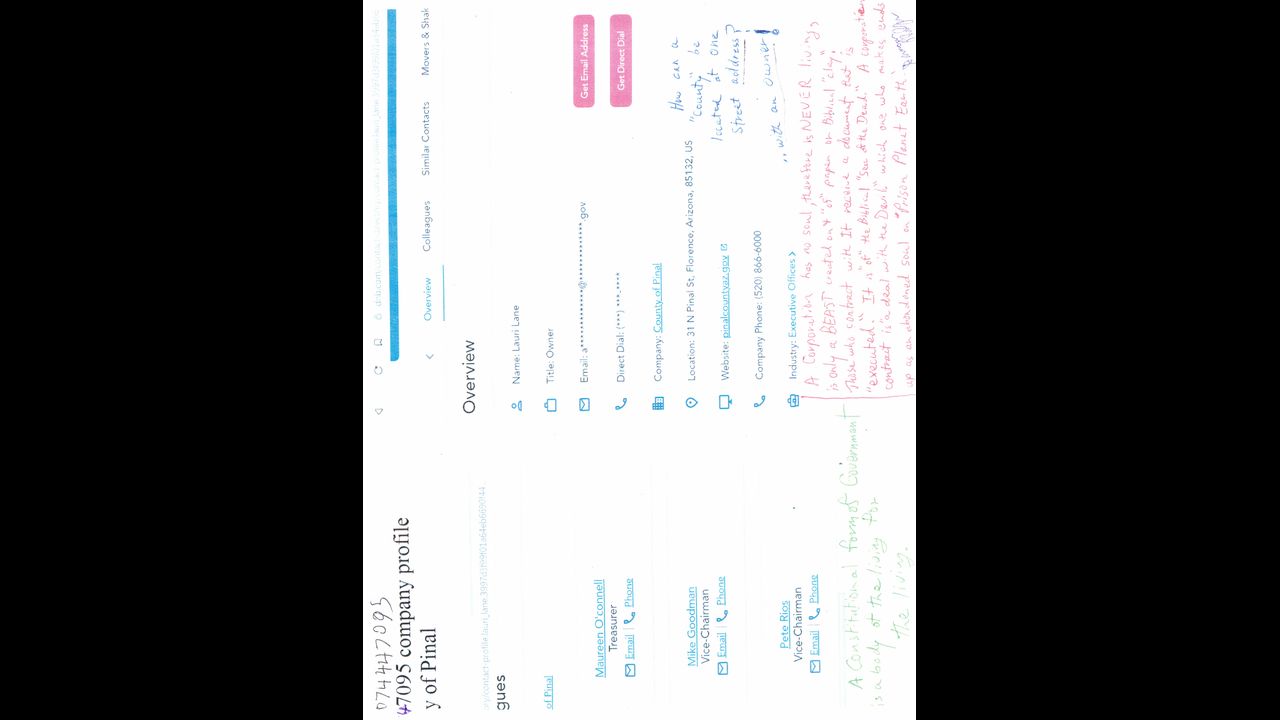 07447095
47095 company profile
y of Pinal
gues
of Pinal
Maureen O'connell
Treasurer
Email | Phone
Mike Goodman
Vice-Chairman
Email | Phone
Pete Rios
Vice-Chairman
Email | Phone
A Constitutional form of Government
is a body of the living for
the living.
Overview Colleagues Similar Contacts Movers & Shak
Overview
Name: Lauri Lane
Title: Owner
Email: a**************@****************.gov
Get Email Address
Direct Dial: (***) ***-****
Get Direct Dial
Company: County of Pinal
Location: 31 N Pinal St, Florence, Arizona, 85132, US
Website: pinalcountyaz.gov
Company Phone: (520) 866-6000
Industry: Executive Offices >
How can a
"County" be
located at one
street address?
"with an owner"
A Corporation has no soul, therefore is NEVER living;
is only a BEAST created on & "of" paper or Biblical "clay".
Those who contract with It receive a document that is
"executed." It is "of" the Biblical "Sea of the Dead." A corporation
contract is a deal with the Devil" which one who makes ends
up as an abandoned soul on "Prison Planet Earth".